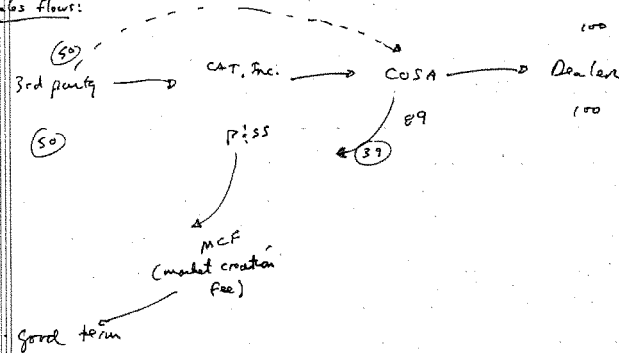 les flows:
100
50
3rd party
CAT, Inc.
COSA
Dealer
89
100
50
P:SS
39
MCF
(market creation
fee)
good term